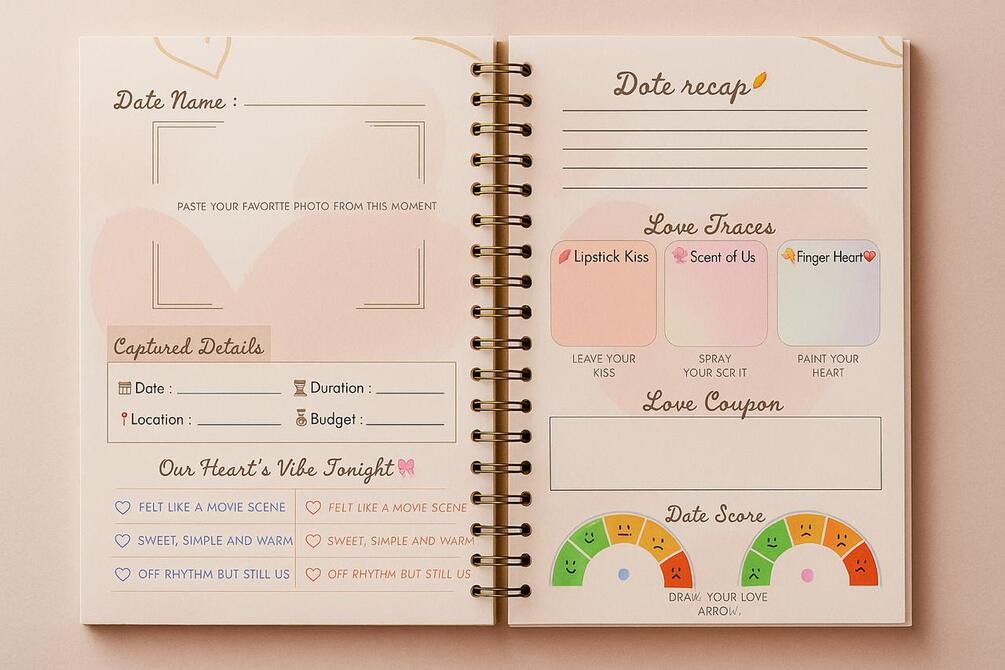 Date Name :
PASTE YOUR FAVORTTE PHOTO FROM THIS MOMENT
Captured Details
Date : Duration :
Location : Budget :
Our Heart's Vibe Tonight
FELT LIKE A MOVIE SCENE FELT LIKE A MOVIE SCENE
SWEET, SIMPLE AND WARM SWEET, SIMPLE AND WARM
OFF RHYTHM BUT STILL US OFF RHYTHM BUT STILL US
Dote recap
Love Traces
Lipstick Kiss Scent of Us Finger Heart
LEAVE YOUR SPRAY PAINT YOUR
KISS YOUR SCR IT HEART
Love Coupon
Date Score
DRAW, YOUR LOVE
ARROW,